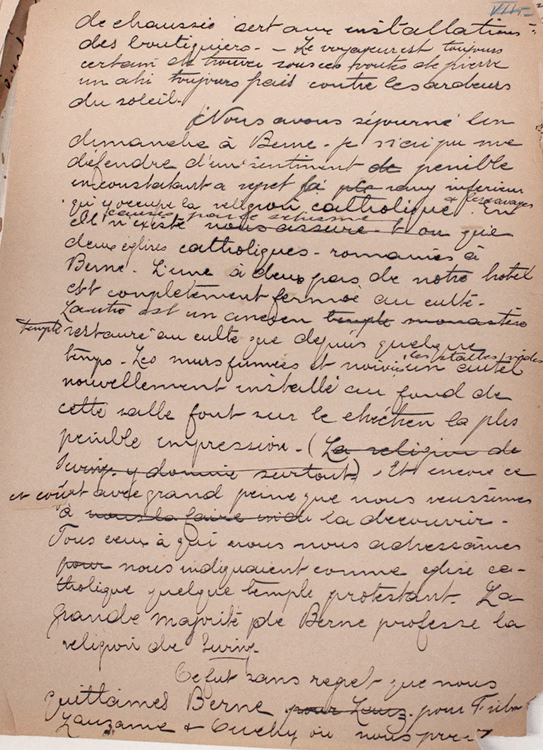 VIII
de chaussée sert aux installations
des boutiquiers. — Le voyageur est toujours
certain de trouver sous ces voutes de pierre
un abri toujours frais contre les ardeurs
du soleil.
Nous avons séjourné un
dimanche à Berne. Je n'ai pu me
défendre d'un sentiment de penible
en constatant a regret la place rang inferieur
qu'y occupe la religion catholique & les ravages
causés par le schisme En
il n'existe nous assure-t-on que
deux églises catholiques-romaines à
Berne. L'une à deux pas de notre hotel
est completement fermée au culte.
L'autre est un ancien temple monastère
temple restauré au culte que depuis quelque
temps. Les murs fumées et noircis un autel
les stalles vides
nouvellement installé au fond de
cette salle font sur le chrétien la plus
penible impression. (La religion de
y domine surtout). Et encore ce
et avec grand peine que nous
à nous la faire la decouvrir.
Tous ceux à qui nous nous adressâmes
pour nous indiquaient comme eglise ca-
tholique quelque temple protestant. La
grande majorité de Berne professe la
religion de
Ce fut sans regret que nous
quittâmes Berne pour pour
Lauzanne & Ouchy ou nous